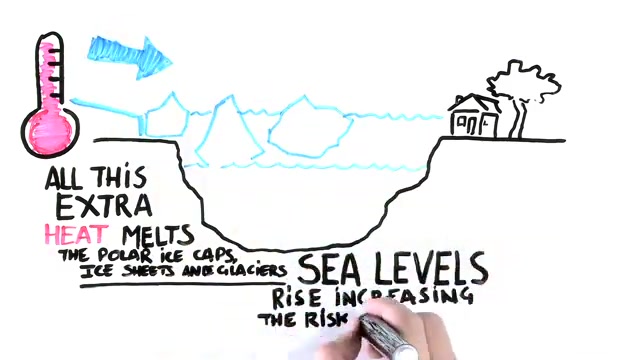 ALL THIS
EXTRA
HEAT MELTS
THE POLAR ICE CAPS,
ICE SHEETS AND GLACIERS
SEA LEVELS
RISE INCREASING
THE RISK